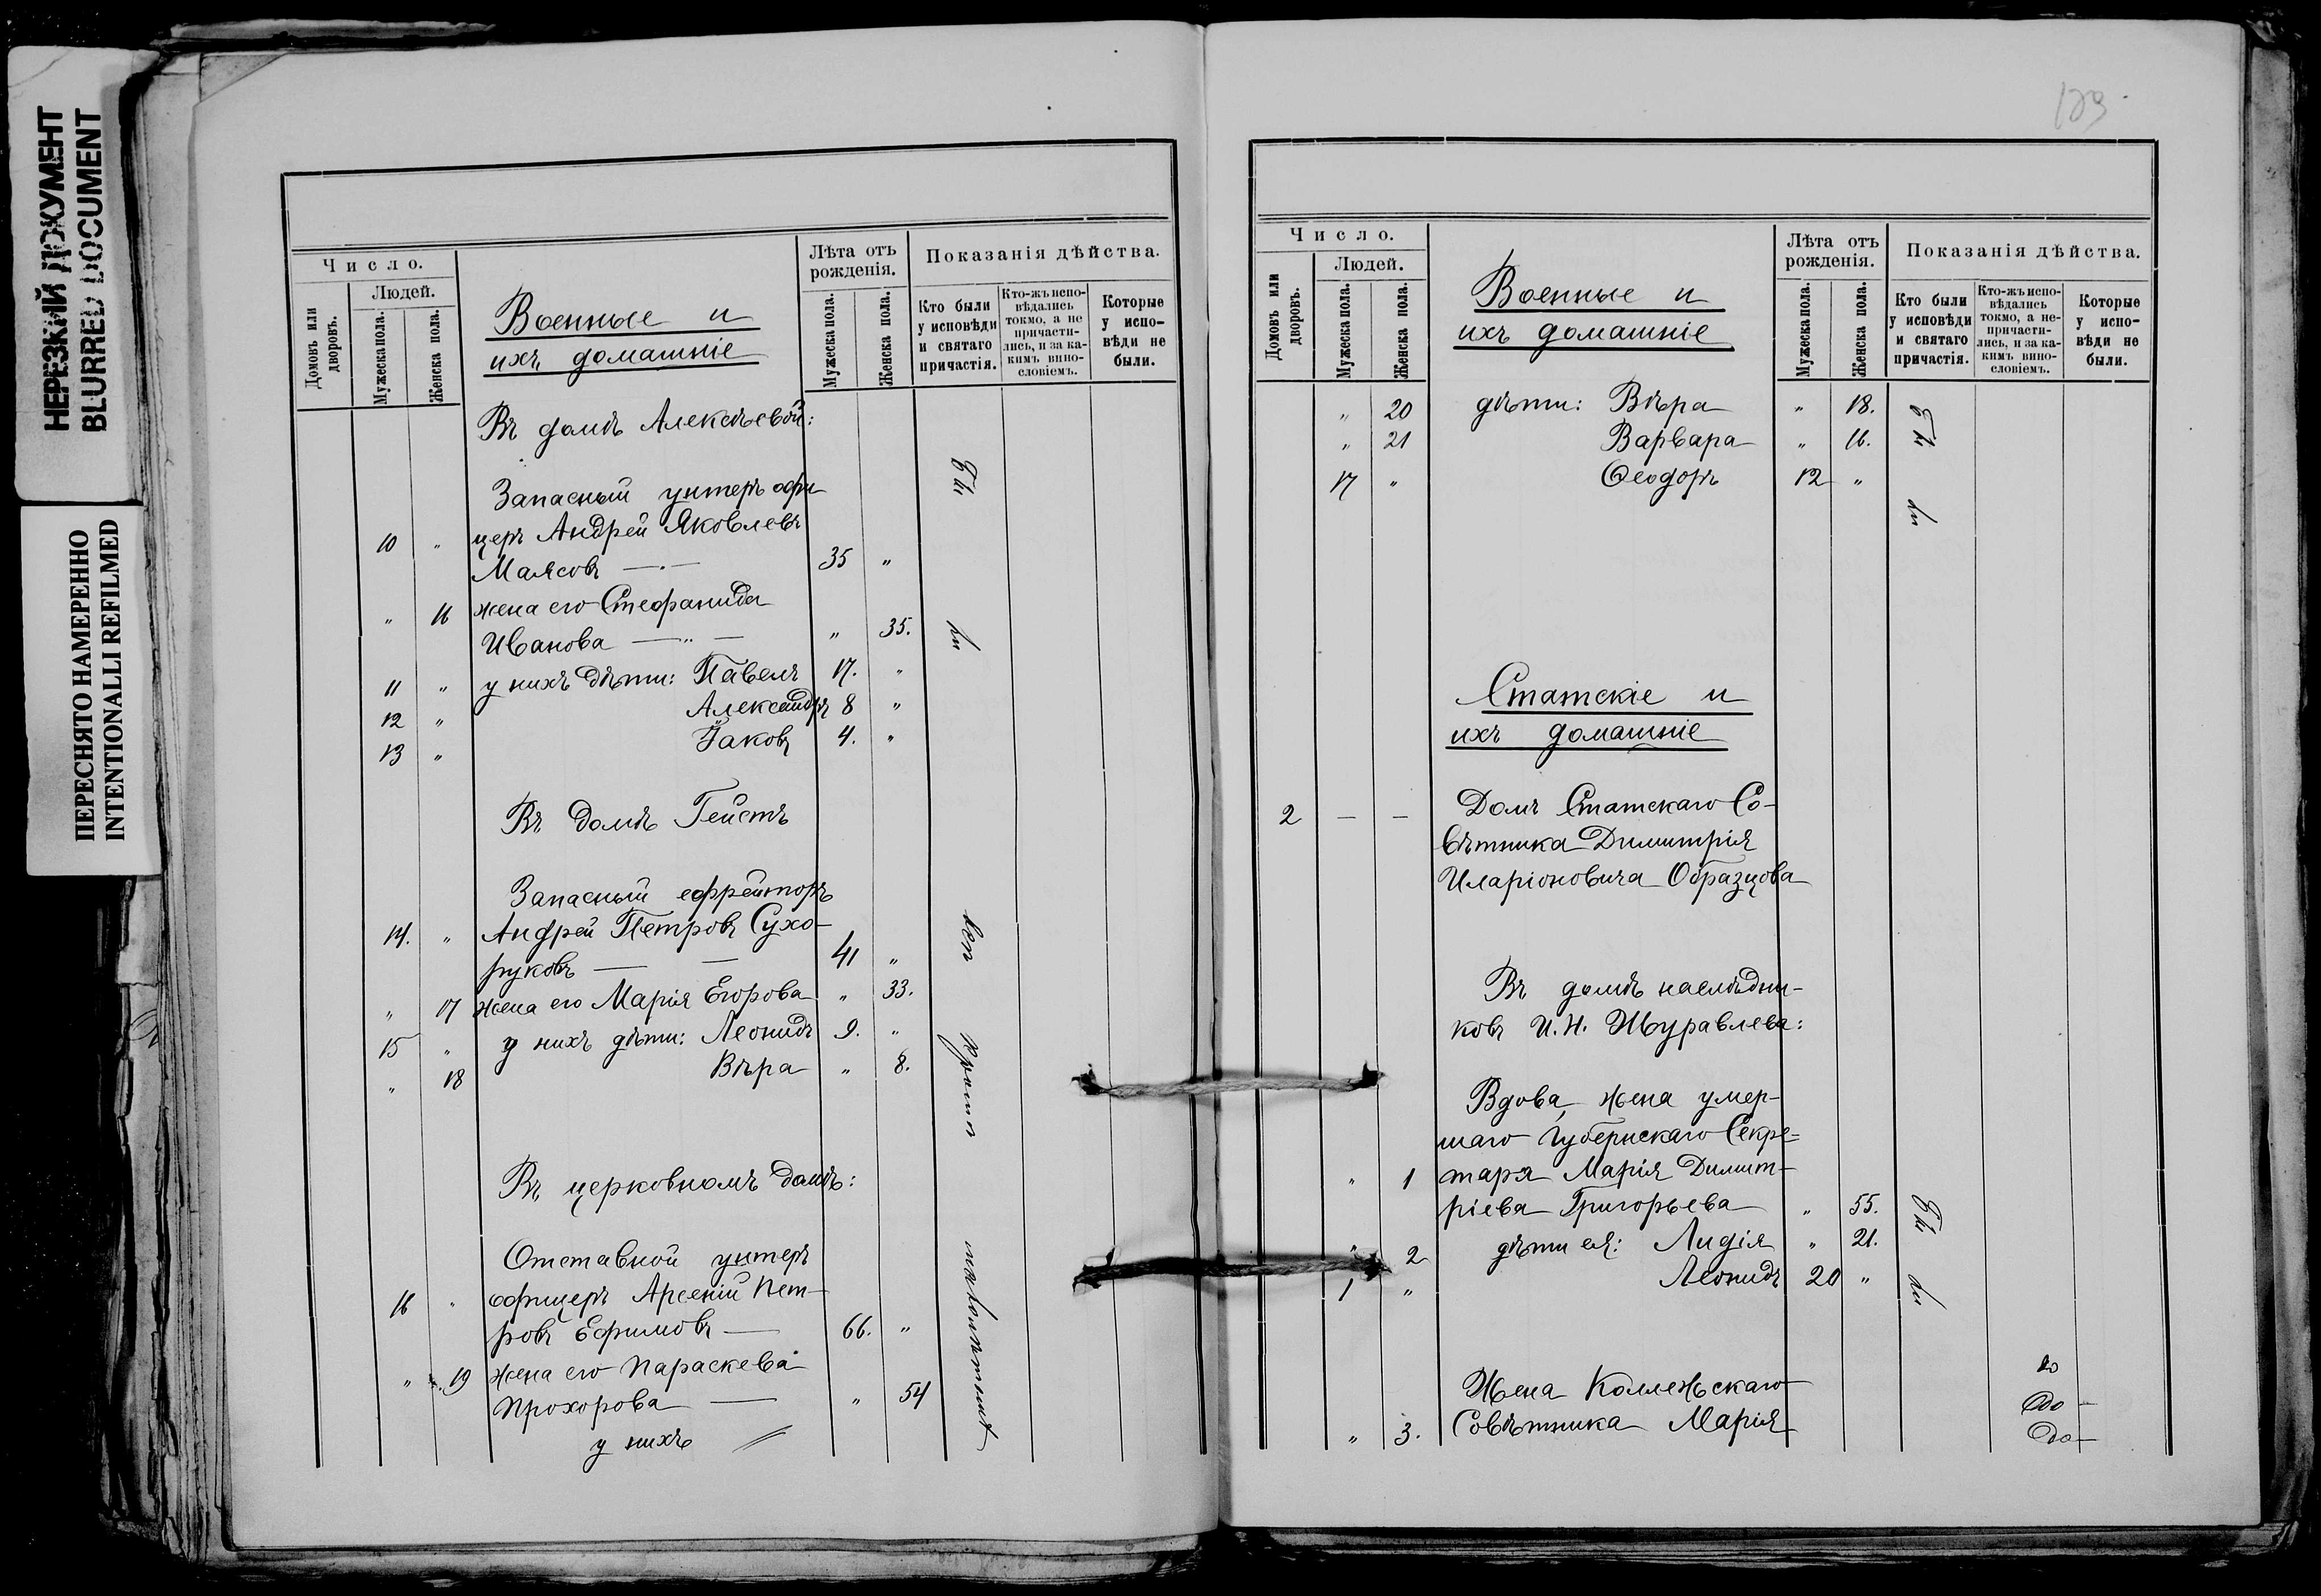 НЕРЕЗКИЙ ДОКУМЕНТ
BLURRED DOCUMENT
ПЕРЕСНЯТО НАМЕРЕННО
INTENTIONALLI REFILMED
Число.
Людей.
Домовъ или дворовъ.
Мужеска пола.
Женска пола.
Военные и
ихъ домашніе
Лѣта отъ рожденія.
Мужеска пола.
Женска пола.
Показанія дѣйства.
Кто были у исповѣди и святаго причастія.
Кто-жъ исповѣдались токмо, а не причастились, и за какимъ винословіемъ.
Которые у исповѣди не были.
Въ домѣ Алексѣевой:
Запасный унтеръ офи
10 „ церъ Андрей Яковлевъ
Маясовъ —·— 35 „
„ 16 жена его Стефанида
Иванова —„— „ 35.
11 „ у нихъ дѣти: Павелъ 17. „
12 „ Александръ 8 „
13 „ Іаковъ 4. „
Бы
ли
Въ домѣ Гейстъ
Запасный ефрейторъ
14. „ Андрей Петровъ Сухо-
руковъ — — 41 „
„ 17 жена его Марія Егорова „ 33.
15 „ у нихъ дѣти: Леонидъ 9. „
„ 18 Вѣра „ 8.
Въ церковномъ домѣ:
Отставной унтеръ
16 „ офицеръ Арсеній Пет-
ровъ Ефимовъ — 66. „
„ 19 жена его Параскева
Прохорова — „ 54
у нихъ
всп
кромѣ
малолѣтнихъ
123
Число.
Людей.
Домовъ или дворовъ.
Мужеска пола.
Женска пола.
Военные и
ихъ домашніе
Лѣта отъ рожденія.
Мужеска пола.
Женска пола.
Показанія дѣйства.
Кто были у исповѣди и святаго причастія.
Кто-жъ исповѣдались токмо, а непричастились, и за какимъ винословіемъ.
Которые у исповѣди не были.
„ 20 дѣти: Вѣра „ 18.
„ 21 Варвара „ 16.
17 „ Ѳеодоръ 12 „
Бы
ли
Статскіе и
ихъ домашніе
2 — — Домъ Статскаго Со-
вѣтника Димитрія
Иларіоновича Образцова
Въ домѣ наслѣдни-
ковъ И. Н. Журавлева:
Вдова, жена умер-
шаго Губернскаго Секре=
„ 1 таря Марія Димит-
ріева Григорьева „ 55.
„ 2 дѣти ея: Лидія „ 21.
1 „ Леонидъ 20 „
Бы
ли
Жена Коллежскаго
„ 3. Совѣтника Марія